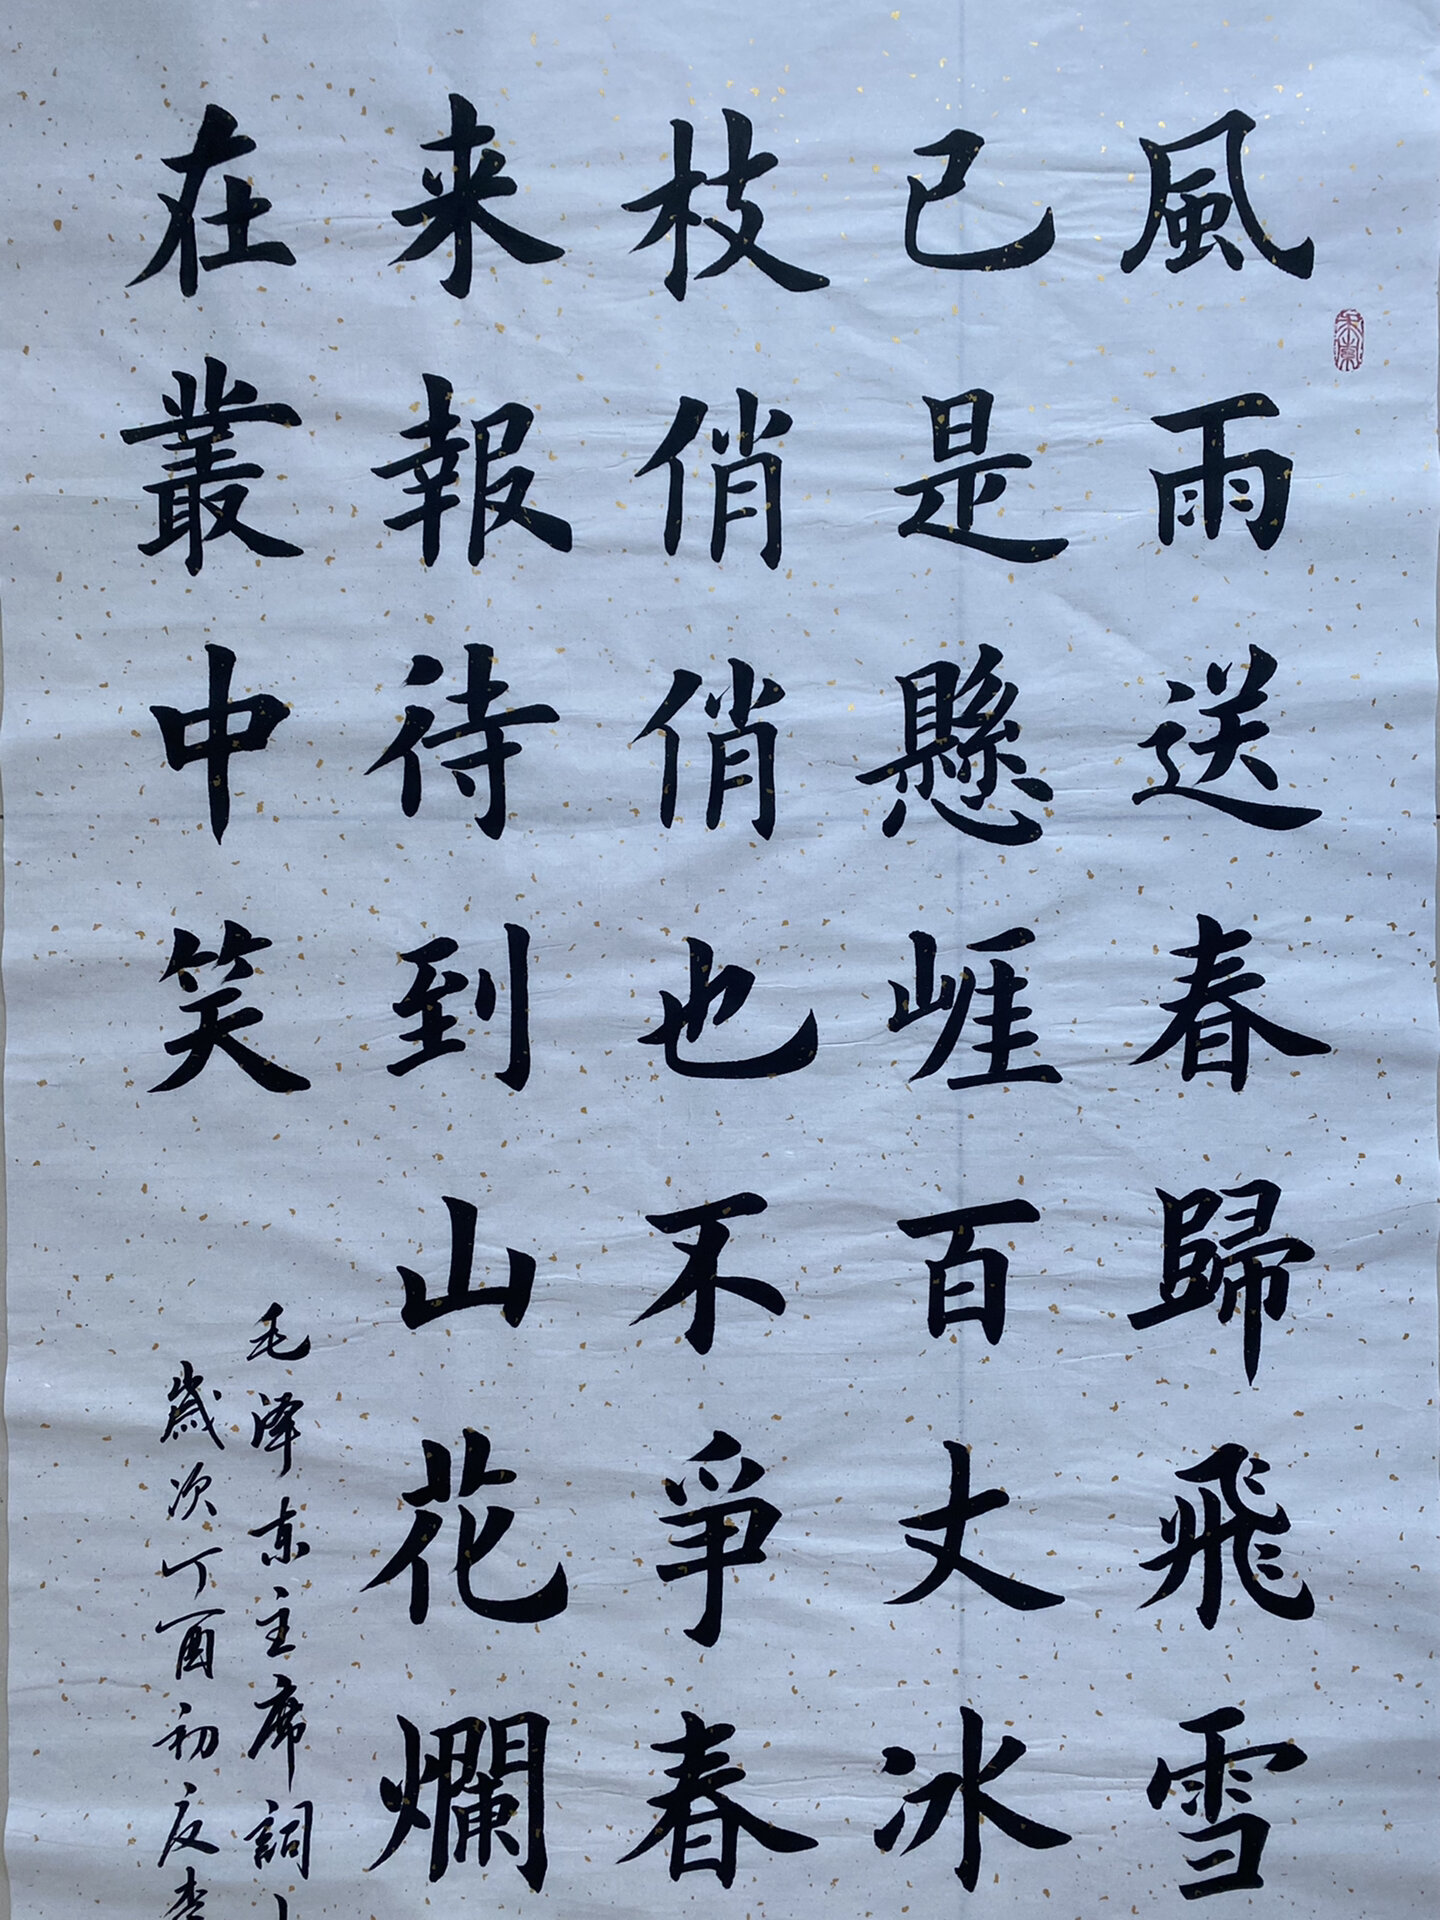 風雨送春歸飛雪
已是懸崖百丈冰
枝俏俏也不爭春
来報待到山花爛
在叢中笑
毛泽东主席詞
歲次丁酉初夏李